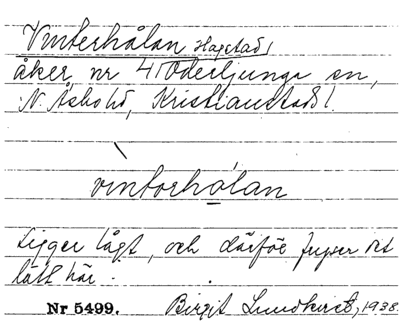 Vinterhålan Hagstad,
åker, nr 4, Oderljunga sn,
N. Åsbo hd, Kristianstads l.
vintorhålan
Ligger lågt, och därför fryser det
lätt här.
Nr 5499. Birgit Lundkvist, 1938.